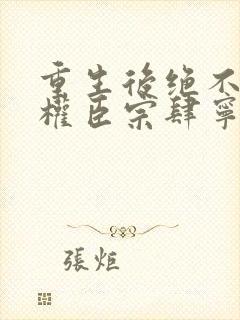 重生後绝不
權臣宗肆寧
張炬